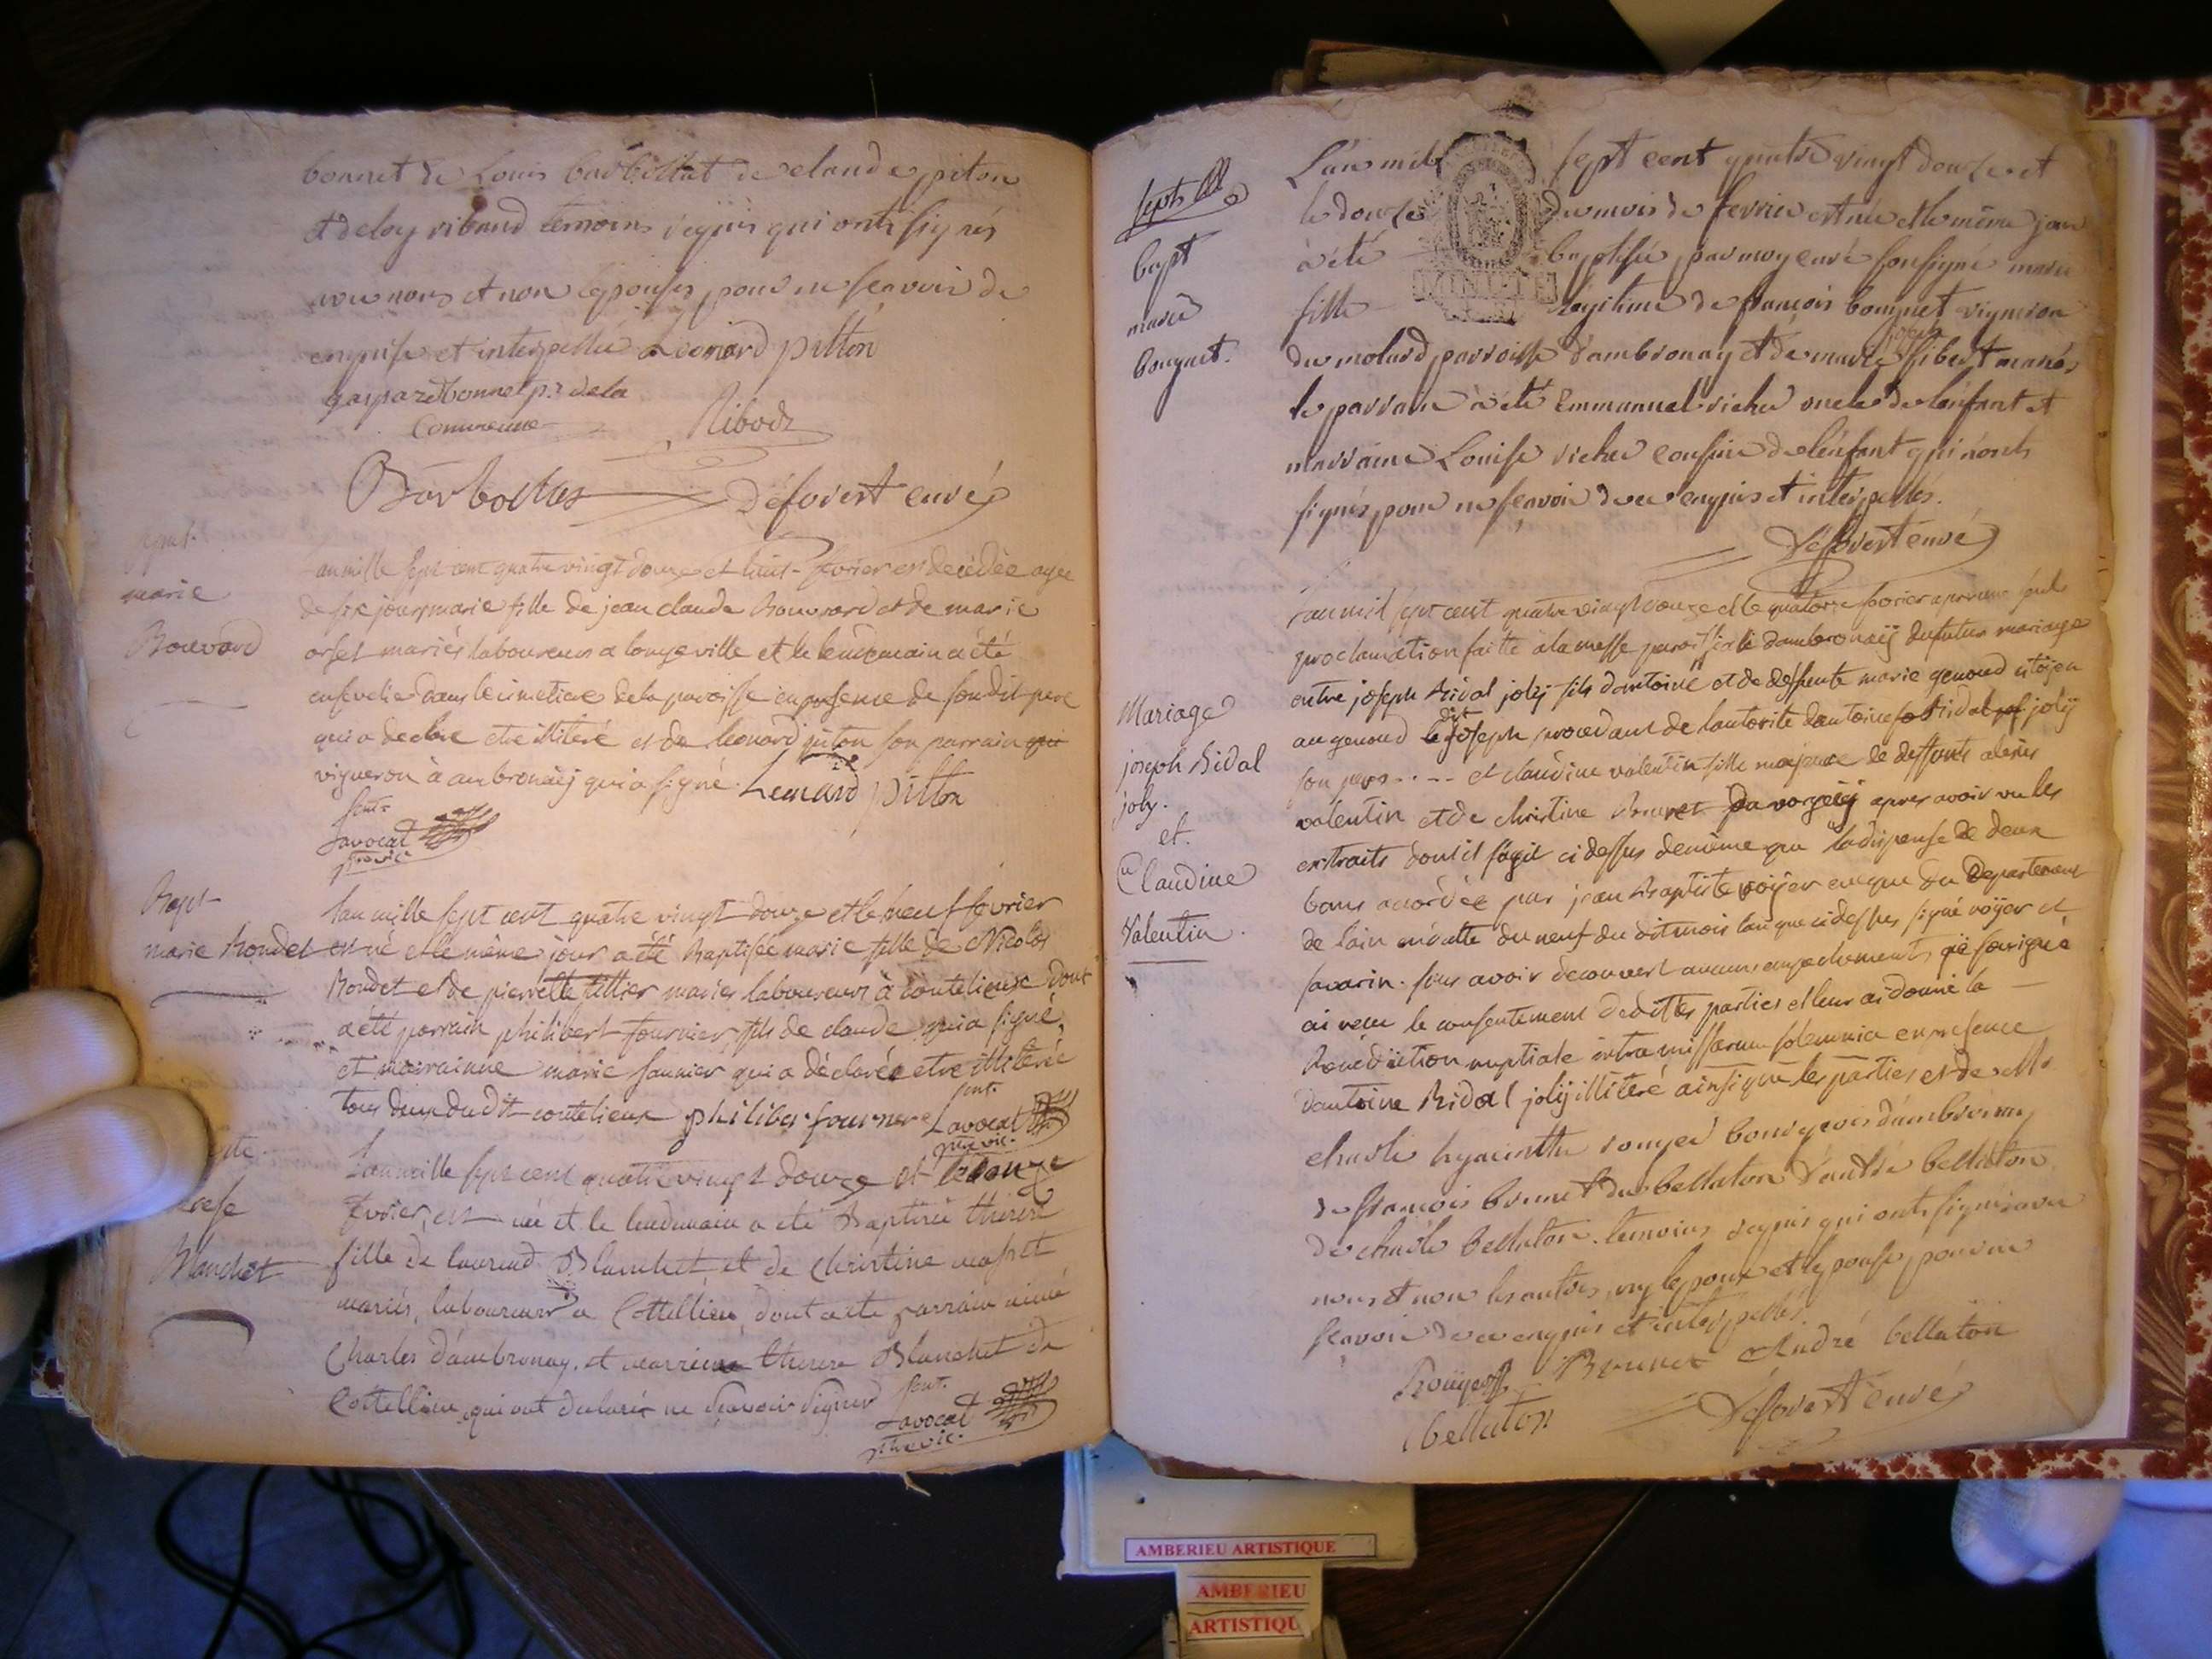 bonnet de Louis barbollat de claude piton
et deloy riboud temoins requis qui ont signés
avec nous et non lepouse pour ne scavoir de
enquise et interpellée Leonard pitton
gaspard bonnet p.r dela
Commune Ribodz
Barbollat deforest curé
marie
Bouvard
Lan mille sept cent quatre vingt douze et huit fevrier est decédée agée
de six jours marie fille de jean claude Bouvard et de marie
orset mariés laboureurs a longeville et le lendemain a été
ensevelie dans le cimetiere de la paroisse en presence de son dit pere
qui a declaré etre illiteré et de leonard piton son parrain qui
vigneron à ambronaÿ qui a signé. Lenard pitton
Lavocat
vic.
Bapt
marie Rondet
Lan mille sept cent quatre vingt douze et le neuf fevrier
est né et le même jour a été Baptisée marie fille de Nicolas
Rondet et de pierrette tillier mariés laboureurs à coutelieux dont
a été parrain philibert fournier fils de claude qui a signé,
et marrainne marie faunier qui a déclarée etre illiterée
tous deux du dit coutelieux philiber fournier Lavocat
vic.
Blanchet
Lan mille sept cent quatre vingt douze et le onze
fevrier, est née et le lendemain a été Baptisée therese
fille de laurend Blanchet et de Christine
mariés, laboureurs a Cottellieu, dont a été parrain aimé
Charles d'ambronay, et marrienne therese Blanchet de
Cottellieu qui ont declarés ne scavoir signer
Lavocat
vic.
bapt
marie
bouquet.
L'an mil sept cent quatre vingt douze et
le douze du mois de fevrier est née et le même jour
à été baptisée par moy curé soussigné marie
fille légitime de françois bouquet vigneron
du molard parroisse d'ambronay et de marie sibert mariés
le parrain à été Emmanuel richer oncle de l'enfant et
marraine Louise richer cousine de l'enfant qui n'ont
signés pour ne scavoir de ce enquis et interpellés.
deforest curé
Mariage
joseph Bidal
joly.
et.
Claudine
Valentin.
Lan mil sept cent quatre vingt douze et le quatorze fevrier apres une seule
proclamation faitte a la messe paroissiale dambronaÿ du futur mariage
entre joseph Bidal jolÿ fils dantoine et de deffunte marie genoud citoÿen
au genoud le dit joseph procedant de lautorité dantoine Bidal jolÿ
son pere .... et claudine valentin fille majeure de deffunts alexis
valentin et de christine Brunet apres avoir vu les
extraits dont il sagit ci dessus de même que la dispense de deux
bans accordée par jean Baptiste roÿer eveque du Departement
de lain en datte du neuf du dit mois tan que ci dessus signé roÿer et
savarin. sans avoir decouvert aucuns empechements je soussigné
ai recu le consentement desdittes parties et leur ai donné la
Benediction nuptiale intra missarum solemnia en presence
dantoine Bidal jolÿ illiteré ainsi que les parties et de
charle hyacinthe rouyer bourgeois d'ambronay
de françois brunet du bellaton d'andré bellaton
de charle bellaton. temoins requis qui ont signés avec
nous et non les autres, ny lepoux et lepouse pour ne
scavoir de ce enquis et interpellés.
Rouyer Brunet André bellaton
bellaton deforest curé
AMBERIEU ARTISTIQUE
AMBERIEU
ARTISTIQU